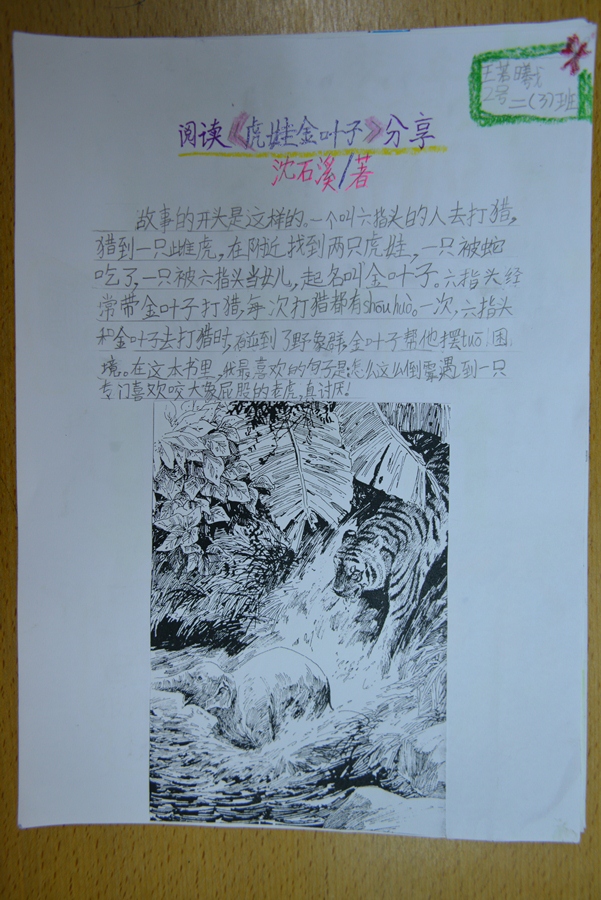 王茗曦
2号 二(3)班
阅读《虎娃金叶子》分享
沈石溪/著
故事的开头是这样的。一个叫六指头的人去打猎,
猎到一只雌虎,在附近找到两只虎娃,一只被蛇
吃了,一只被六指头当女儿,起名叫金叶子。六指头经
常带金叶子打猎,每次打猎都有shōu huò。一次,六指头
和金叶子去打猎时,碰到了野象群,金叶子帮他摆tuō困
境。在这本书里,我最喜欢的句子是:怎么这么倒霉遇到一只
专门喜欢咬大象屁股的老虎,真讨厌!